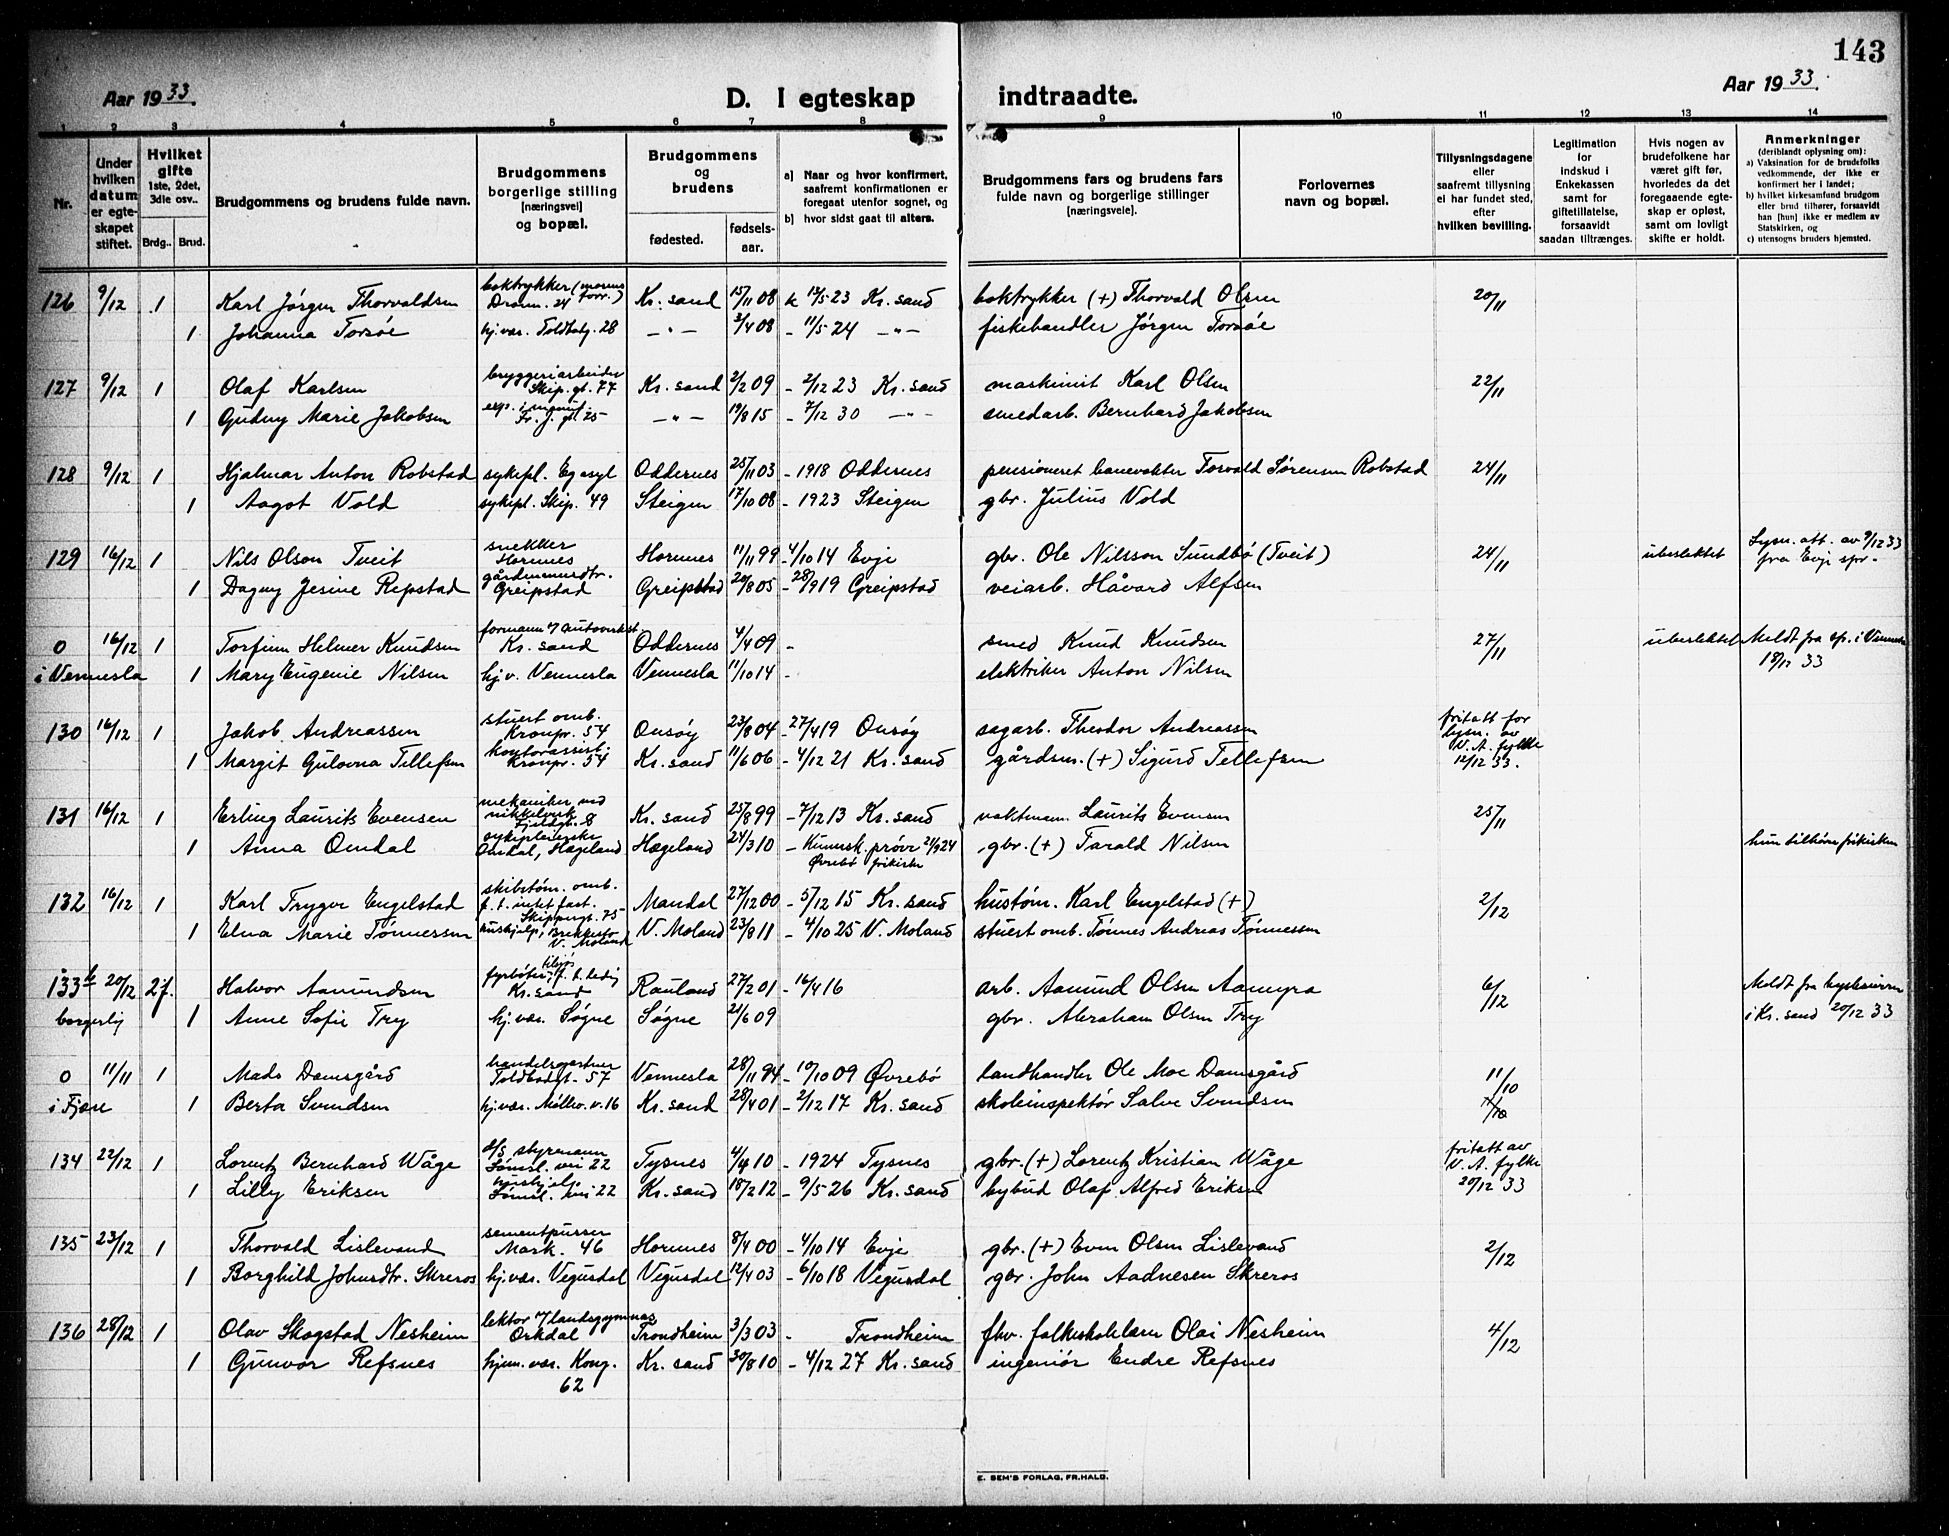 143
Aar 1933.
D. I egteskap indtraadte.
Aar 1933.
1 2 3 4 5 6 7 8 9 10 11 12 13 14
Nr.
Under hvilken datum er egteskapet stiftet.
Hvilket gifte 1ste, 2det, 3die osv..
Brdg.. Brud.
Brudgommens og brudens fulde navn.
Brudgommens borgerlige stilling [næringsvei] og bopæl.
Brudgommens og brudens
fødested. fødsels-aar.
a) Naar og hvor konfirmert, saafremt konfirmationen er foregaat utenfor sognet, og
b) hvor sidst gaat til alters.
Brudgommens fars og brudens fars fulde navn og borgerlige stillinger [næringsveie].
Forlovernes navn og bopæl.
Tillysningsdagene eller saafremt tillysning ei har fundet sted, efter hvilken bevilling.
Legitimation for indskud i Enkekassen samt for giftetillatelse, forsaavidt saadan tiltrænges.
Hvis nogen av brudefolkene har været gift før, hvorledes da det foregaaende egteskap er opløst, samt om lovligt skifte er holdt.
Anmerkninger (deriblandt oplysning om):
a) Vaksination for de brudefolks vedkommende, der ikke er konfirmert her i landet;
b) hvilket kirkesamfund brudgom eller brud tilhører, forsaavidt han [hun] ikke er medlem av Statskirken, og
c) utensogns bruders hjemsted.
126 9/12 1 Karl Jørgen Thorvaldsen boktrykker Dronn. 24 Kr. sand 15/11 08 k 13/5 23 Kr. sand boktrykker (+) Thorvald Olsen 20/11
1 Johanna Torsøe hj. vær. Toldbotg. 28 -"- 3/4 08 - 11/5 24 -"- fiskehandler Jørgen Torsøe
127 9/12 1 Olaf Karlsen bryggeriarbeider Skip. gt. 77 Kr. sand 2/2 09 - 2/12 23 Kr. sand maskinist Karl Olsen 22/11
1 Gudny Marie Jakobsen Fr. J. gt. 25 -"- 19/8 15 - 7/12 30 -"- smedarb. Bernhard Jakobsen
128 9/12 1 Hjalmar Anton Robstad sykepl. Eg asyl Oddernes 25/11 03 - 1918 Oddernes pensioneret banevokter Torvald Sørensen Robstad 24/11
1 Aagot Vold sykepl. Skip. 49 Steigen 17/10 08 - 1923 Steigen gbr. Julius Vold
129 16/12 1 Nils Olson Tveit snekker Hornnes Hornnes 11/11 99 - 4/10 14 Evje gbr. Ole Nilsson Sundbø (Tveit) 24/11 ubeslektet Lysn. att. av 9/12 33 fra Evje spr.
1 Dagny Jesine Repstad Greipstad Greipstad 20/8 05 - 28/9 19 Greipstad veiarb. Håvard Alfsen
0 i Vennesla 16/12 1 Torfinn Helmer Knudsen formann v/ autoverkst. Kr. sand Oddernes 4/4 09 - smed Knud Knudsen 27/11 ubeslektet Meldt fra sp. i Vennesla 18/12 33
1 Mary Eugenie Nilsen hj. v. Vennesla Vennesla 11/10 14 - elektriker Anton Nilsen
130 16/12 1 Jakob Andreassen stuert omb. Kronpr. 54 Onsøy 23/8 04 - 27/4 19 Onsøy sagarb. Theodor Andreassen fritatt for lysn. av V. A. fylke 12/12 33.
1 Margit Gulovna Tellefsen kontorassist. Kronpr. 54 Kr. sand 11/6 06 - 4/12 21 Kr. sand gårdsm. (+) Sigurd Tellefsen
131 16/12 1 Erling Laurits Evensen mekaniker ved nikkelverk Fjeldgt. 8 Kr. sand 25/8 99 - 7/12 13 Kr. sand vaktmann Laurits Evensen 25/11
1 Anna Omdal sykepleierske Omdal, Hægeland Hægeland 24/3 10 - Kunnsk. prøve 21/9 24 Øvrebø frikirke gbr. (+) Tarald Nilsen hun tilhører frikirken
132 16/12 1 Karl Trygve Engelstad skibstøm. omb. f. t. intet fast. Skippergt. 75 Mandal 27/12 00 - 5/12 15 Kr. sand hustøm. Karl Engelstad (+) 2/12
1 Elna Marie Tønnessen hushjelp, Brekkestø V. Moland V. Moland 23/8 11 - 4/10 25 V. Moland stuert omb. Tønnes Andreas Tønnessen
133b borgerlig 20/12 2 f. Halvor Aamundsen fyrbøter tilsjøs f. t. ledig Kr. sand Rauland 27/2 01 - 16/4 16 arb. Aamund Olsen Aamyra 6/12 Meldt fra byskriveren i Kr. sand 20/12 33
1 Anne Sofie Try hj. vær. Søgne Søgne 21/6 09 gbr. Abraham Olsen Try
0 i Fjære 11/11 1 Mads Damsgård handelsgartner Toldbodgt. 57 Vennesla 28/11 94 - 10/10 09 Øvrebø landhandler Ole Moe Damsgård 11/10
1 Berta Svendsen hj. vær. Møllev. v. 16 Kr. sand 28/4 01 - 2/12 17 Kr. sand skoleinspektør Salve Svendsen
134 22/12 1 Lorentz Bernhard Wåge styrmann Tømsl. vei 22 Tysnes 4/4 10 - 1924 Tysnes gbr. (+) Lorentz Kristian Wåge fritatt av V. A. fylke 20/12 33
1 Lilly Eriksen hushjelp Tømsl. vei 22 Kr. sand 18/2 12 - 9/5 26 Kr. sand bybud Olaf Alfred Eriksen
135 23/12 1 Thorvald Lislevand sementpusser Mark. 46 Hornnes 8/4 00 - 4/10 14 Evje gbr. (+) Even Olsen Lislevand 2/12
1 Borghild Johnsdtr. Skreros hj. vær. Vegusdal Vegusdal 12/4 03 - 6/10 18 Vegusdal gbr. John Aadnesen Skreros
136 28/12 1 Olav Skogstad Nesheim lektor v/ landsgymnas Orkdal Trondheim 3/3 03 - Trondheim fhv. folkeskolelærer Olai Nesheim 4/12
1 Gunvor Refsnes hjem. vær. Kong. 62 Kr. sand 30/8 10 - 4/12 27 Kr. sand ingeniør Endre Refsnes
E. SEM'S FORLAG, FR.HALD.